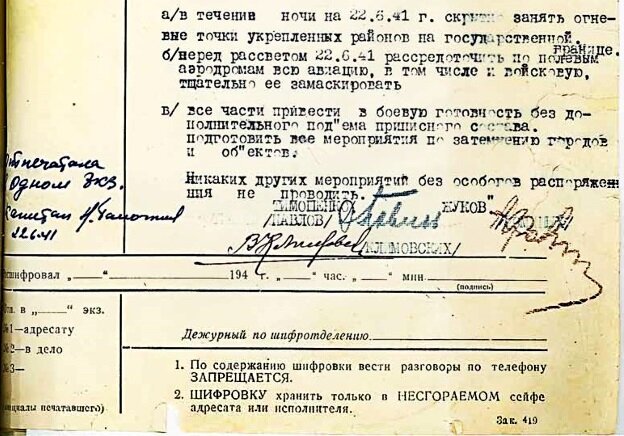 а/в течении ночи на 22.6.41 г. скрытно занять огне-
вые точки укрепленных районов на государственной
границе.
б/перед рассветом 22.6.41 рассредоточить по полевым
аэродромам всю авиацию, в том числе и войсковую,
тщательно ее замаскировать
в/ все части привести в боевую готовность без до-
полнительного под"ема приписного состава.
подготовить все мероприятия по затемнению городов
и об"ектов.
Никаких других мероприятий без особого распоряже
ния не проводить.
Отпечатала
Одном экз.
капитан
22.6.41
ТИМОШЕНКО ЖУКОВ"
/ПАВЛОВ/
КЛИМОВСКИХ/
сшифровал „——“ 194 г. „——“ час. „——“ мин.
(подпись)
в „——“ экз.
№1—адресату
№2—в дело
№3—
циалы печатавшего)
Дежурный по шифротделению.
1. По содержанию шифровки вести разговоры по телефону
ЗАПРЕЩАЕТСЯ.
2. ШИФРОВКУ хранить только в НЕСГОРАЕМОМ сейфе
адресата или исполнителя.
Зак. 419